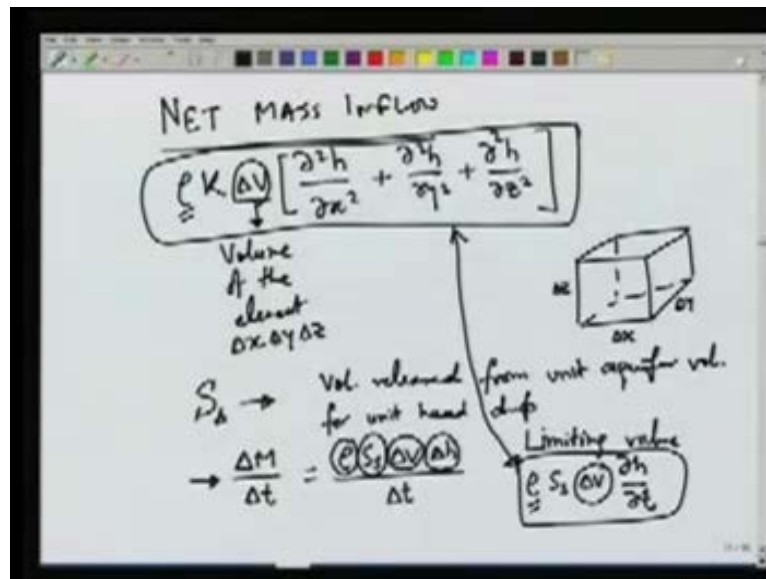 NET MASS INFLOW
ρ K ΔV [ ∂²h/∂x² + ∂²h/∂y² + ∂²h/∂z² ]
Volume
of the
element
Δx Δy Δz
Δz
Δy
Δx
Ss → Vol. released from unit aquifer vol.
for unit head drop
Limiting value
→ ΔM/Δt = ρ Ss ΔV Δh / Δt
ρ Ss ΔV ∂h/∂t